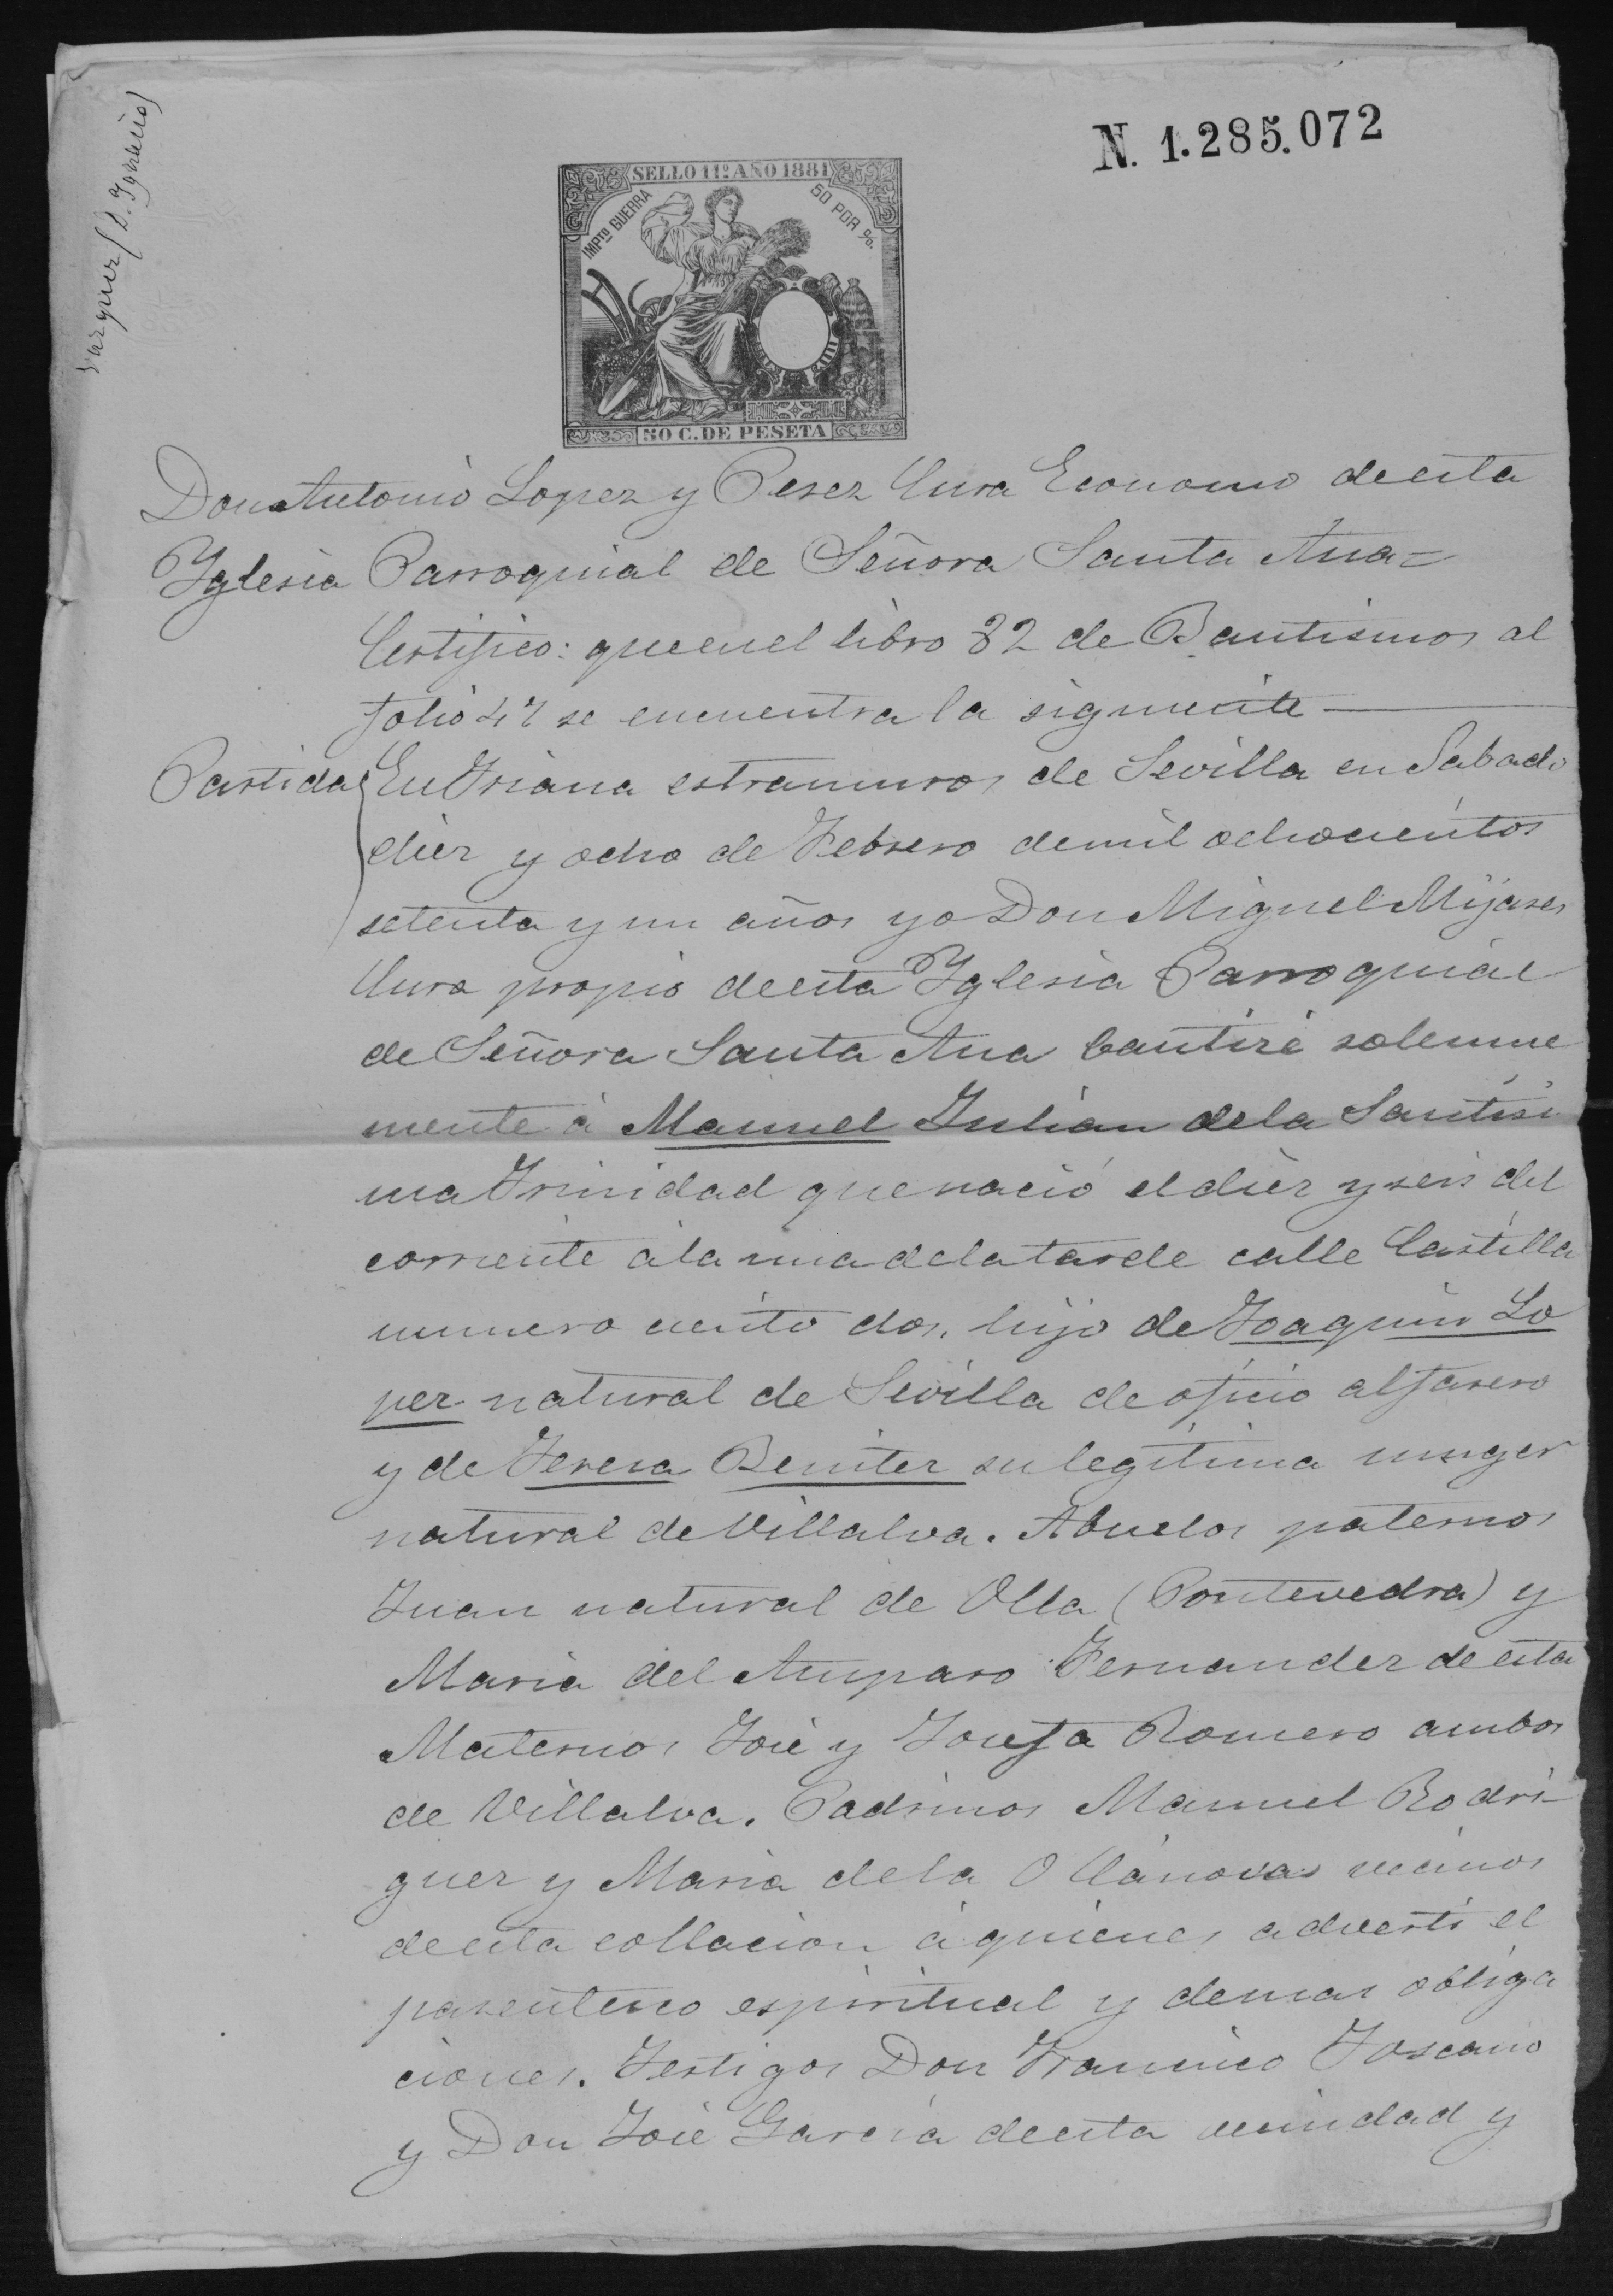 N. 1.285.072
SELLO 11º AÑO 1881
IMPTO GUERRA
50 POR %.
50 C. DE PESETA
Don Antonio Lopez y Perez Cura Economo de esta
Yglesia Parroquial de Señora Santa Ana=
Certifico: que en el libro 32 de Bautismos al
folio 47 se encuentra la siguiente
Partida
En Triana estramuros de Sevilla en Sabado
diez y ocho de Febrero de mil ochocientos
setenta y un años yo Don Miguel Mijares
Cura propio de esta Yglesia Parroquial
de Señora Santa Ana bautizé solemne
mente à Manuel Julian de la Santisi
ma Trinidad que nació el diez y seis del
corriente à la una de la tarde calle Castilla
numero ciento dos, hijo de Joaquin Lo
pez natural de Sevilla de oficio alfarero
y de Teresa Benitez su legitima muger
natural de Villalva. Abuelos paternos
Juan natural de Olla (Pontevedra) y
Maria del Amparo Fernandez de esta
Maternos José y Josefa Romero ambos
de Villalva. Padrinos Manuel Rodri
guez y Maria de la O Cánovas vecinos
de esta collacion à quienes adverti el
parentesco espiritual y demas obliga
ciones. Testigos Don Francisco Toscano
y Don José Garcia de esta vecindad y